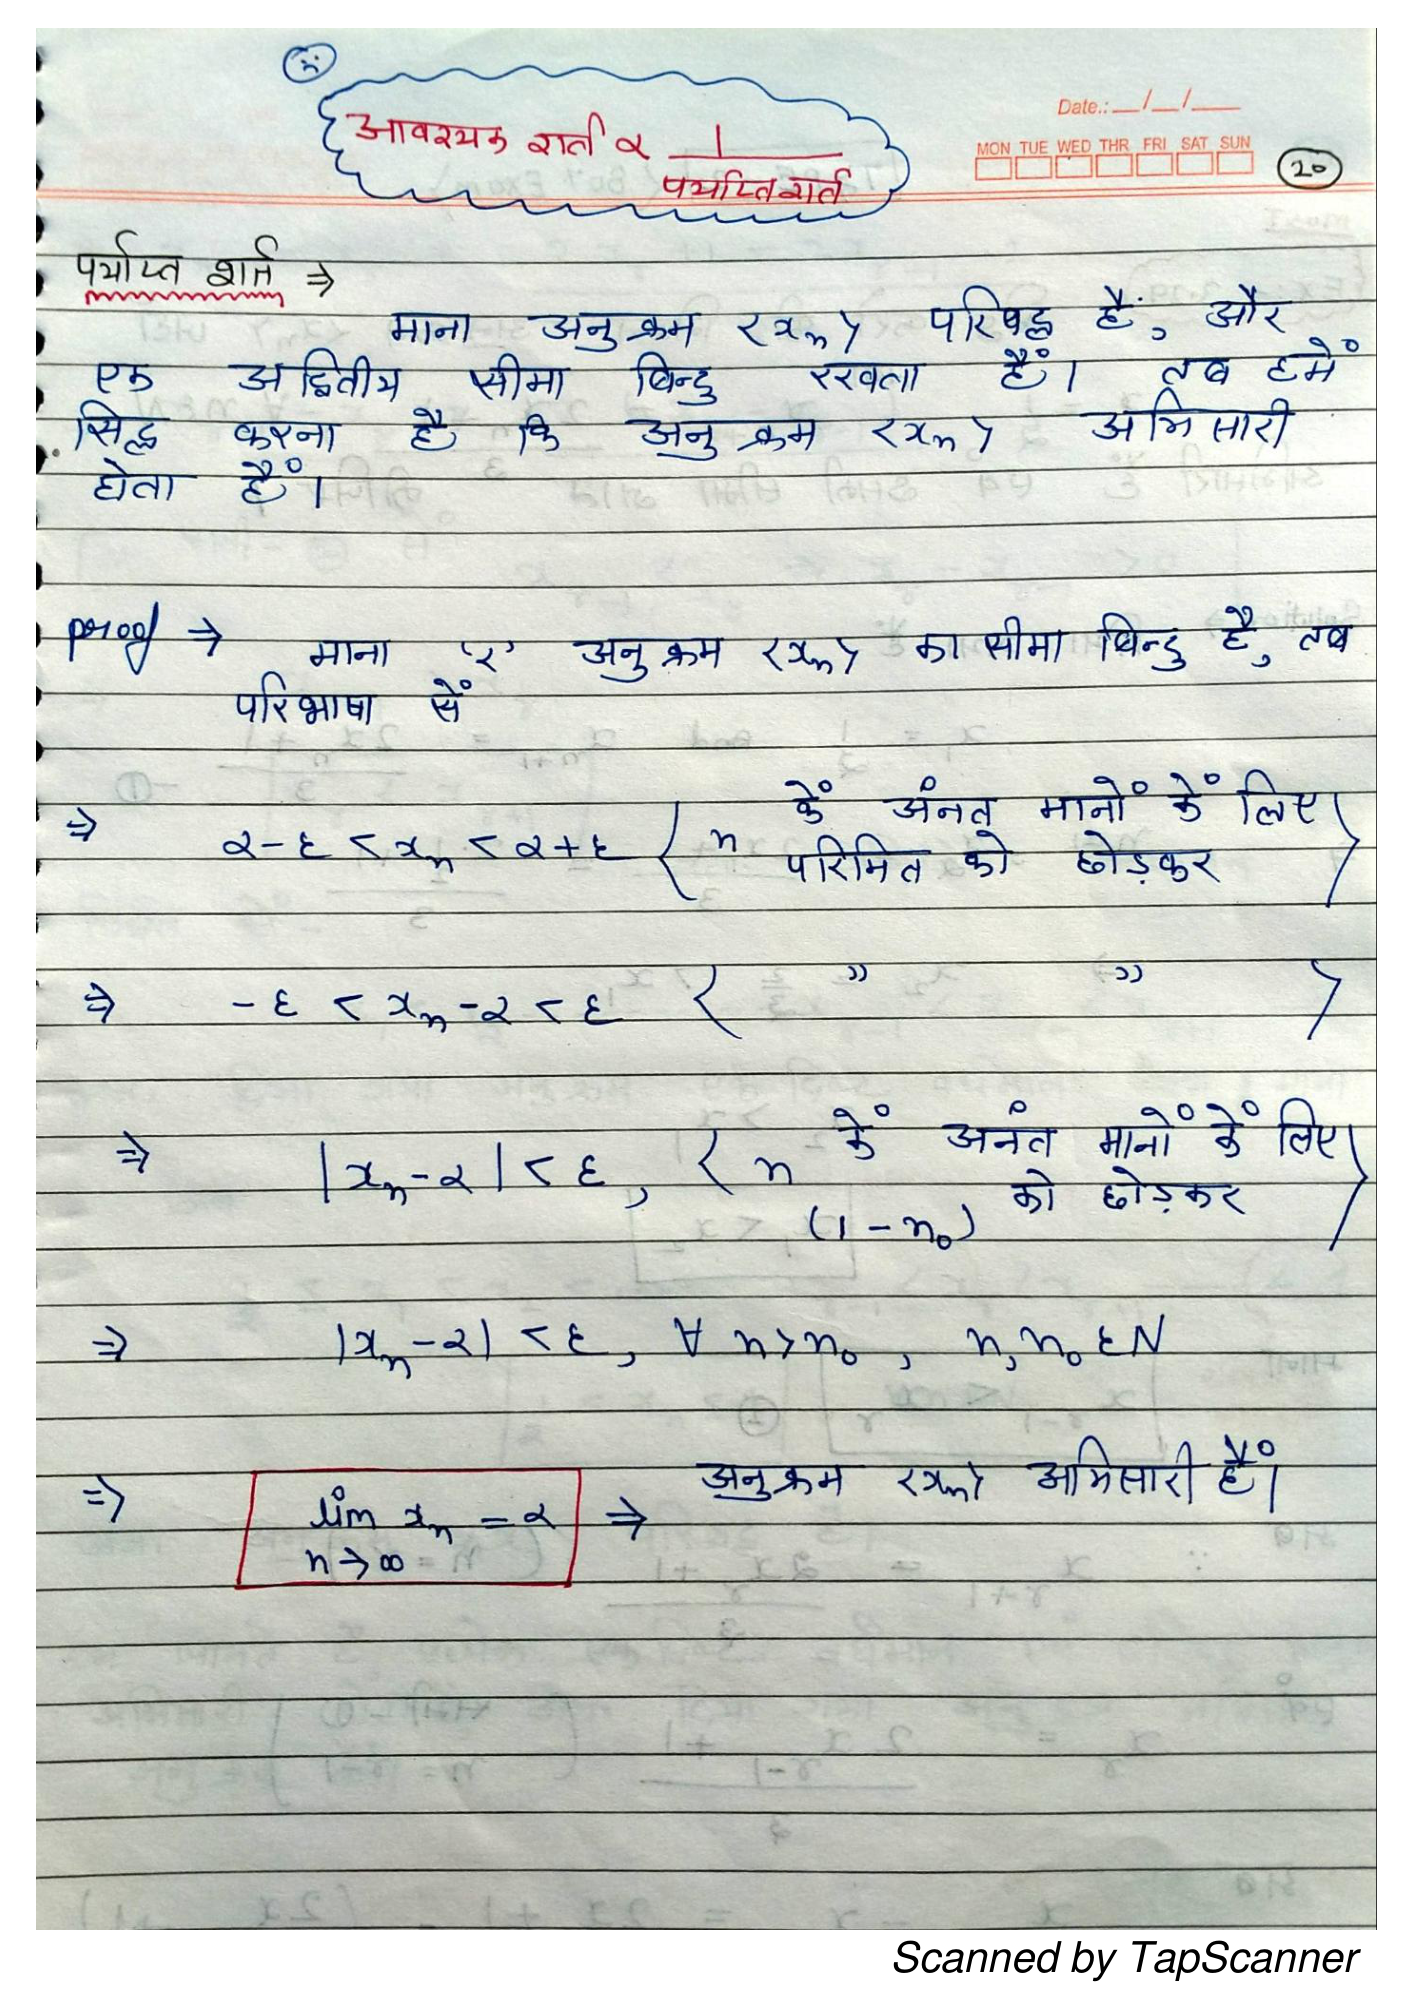 ∵
Date.: __/__/____
आवश्यक शर्त α 1
पर्याप्त शर्त
MON TUE WED THR FRI SAT SUN
20
पर्याप्त शर्त ⇒
माना अनुक्रम <xₙ> परिबद्ध हैं, और
एक अद्वितीय सीमा बिन्दु रखता हैं। तब हमें
सिद्ध करना है कि अनुक्रम <xₙ> अभिसारी
होता हैं।
proof ⇒ माना '२' अनुक्रम <xₙ> का सीमा बिन्दु है, तब
परिभाषा सें
⇒ α-ε < xₙ < α+ε < n कें अंनत मानों कें लिए
परिमित को छोड़कर >
⇒ -ε < xₙ-α < ε < " " >
⇒ |xₙ-α| < ε, < n कें अनंत मानों कें लिए
(1 - n₀) को छोड़कर >
⇒ |xₙ-α| < ε, ∀ n > n₀, n, n₀ ∈ N
⇒ lim xₙ = α ⇒ अनुक्रम <xₙ> अभिसारी हैं।
n→∞
Scanned by TapScanner